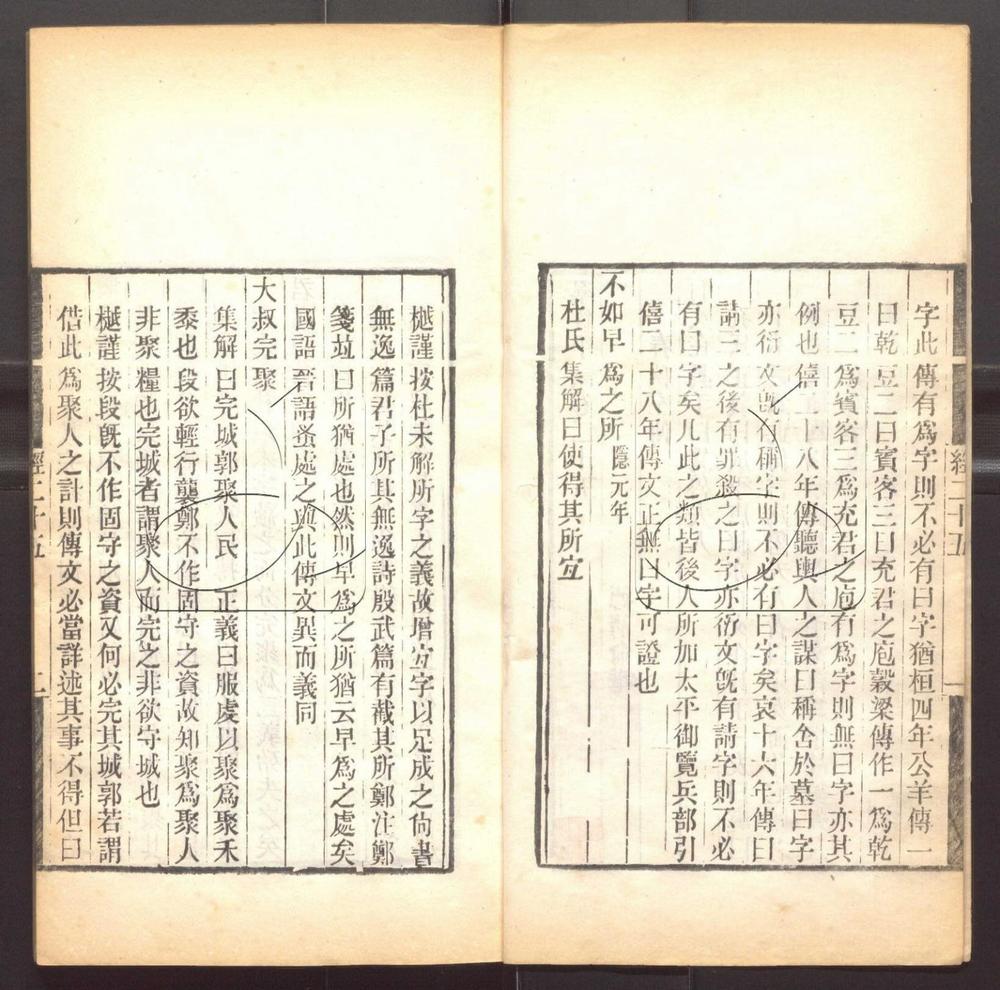 字此傳有爲字則不必有曰字猶桓四年公羊傳一
曰乾豆二曰賓客三曰充君之庖穀梁傳作一爲乾
豆二爲賓客三爲充君之庖有爲字則無曰字亦其
例也僖二十八年傳聽輿人之謀曰稱舍於墓曰字
亦衍文旣有稱字則不必有曰字矣哀十六年傳曰
請三之後有罪殺之曰字亦衍文旣有請字則不必
有曰字矣凡此之類皆後人所加太平御覽兵部引
僖二十八年傳文正無曰字可證也
不如早爲之所 隱元年
杜氏集解曰使得其所宜
經二十五
一
樾謹按杜未解所字之義故增宜字以足成之尙書
無逸篇君子所其無逸詩殷武篇有截其所鄭注鄭
箋竝曰所猶處也然則早爲之所猶云早爲之處矣
國語晉語蚤處之與此傳文異而義同
大叔完聚
集解曰完城郭聚人民 正義曰服虔以聚爲聚禾
黍也段欲輕行襲鄭不作固守之資故知聚爲聚人
非聚糧也完城者謂聚人而完之非欲守城也
樾謹按段旣不作固守之資又何必完其城郭若謂
借此爲聚人之計則傳文必當詳述其事不得但曰
經二十五
二